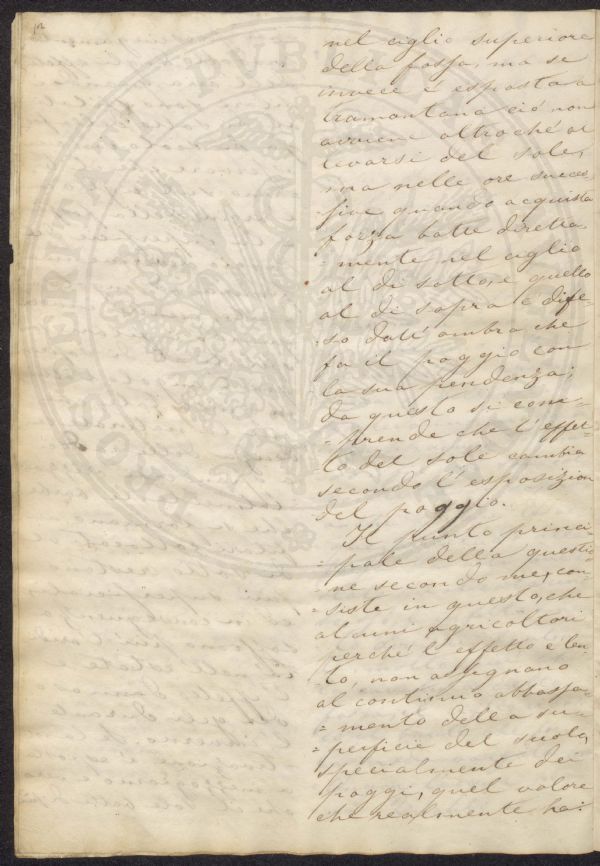 12
PROSPERITATI PUBLICAE
nel ciglio superiore
della fossa, ma se
invece è esposta a
tramontana ciò non
avviene altroché al
levarsi del sole,
ma nelle ore succes-
sive quando acquista
forza batte diretta
-mente nel ciglio
al di sotto, e quello
al di sopra è dife-
so dall'ombra che
fa il poggio con
la sua pendenza;
da questo si com-
-prende che l'effet-
to del sole cambia
secondo l'esposizion
del poggio.
Il punto princi-
-pale della questio
-ne secondo me, con-
-siste in questo, che
alcuni agricoltori
perché l'effetto è len-
to, non assegnano
al continuo abbassa-
-mento della su-
-perficie del suolo,
specialmente dei
poggi, quel valore
che realmente ha: